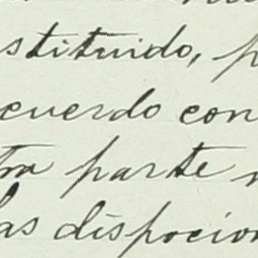 stituido, p
cuerdo con
tra parte
las dispocion